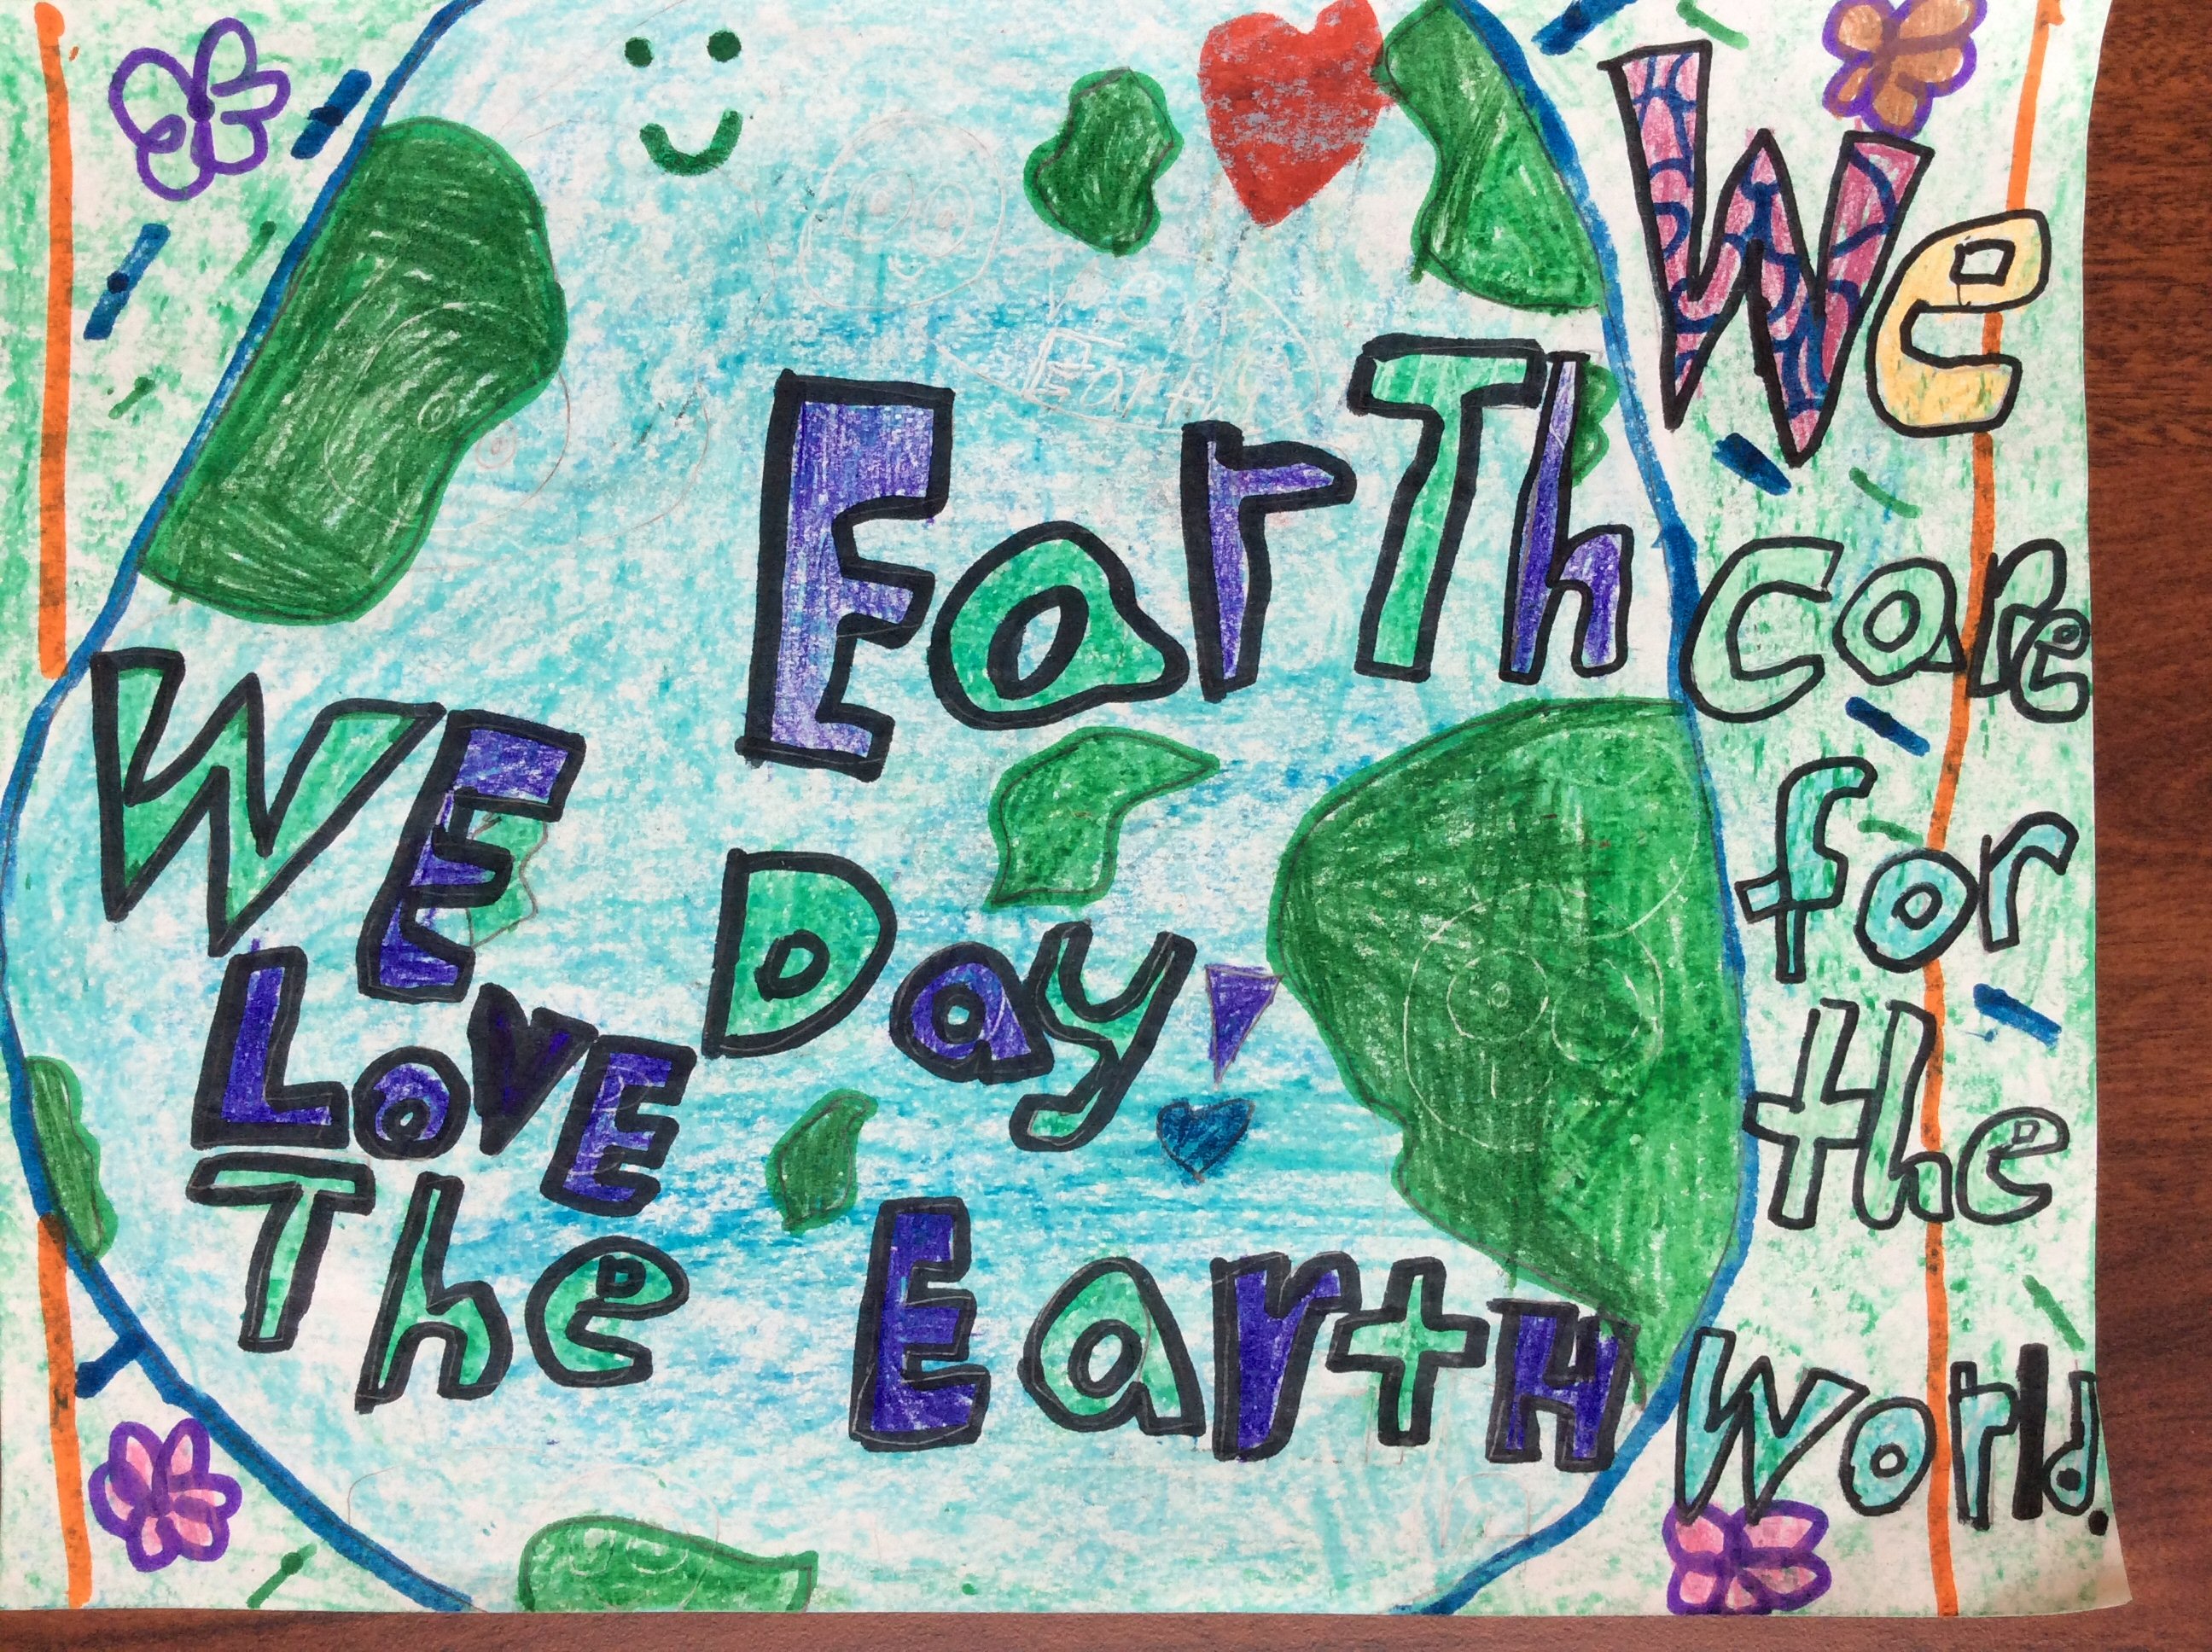 Earth
Day!
WE
LOVE
The Earth
We
care
for
the
World.
Earth